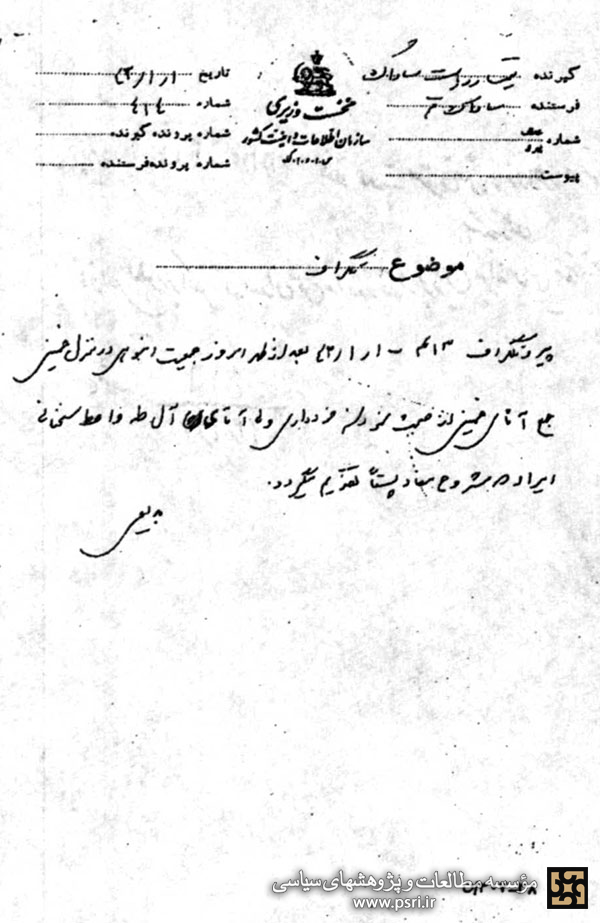 گیرنده ریاست ساواک
فرستنده ساواک قم
شماره
پیوست
نخست وزیری
سازمان اطلاعات و امنیت کشور
تاریخ ۴۲/۱/۱
شماره ۴۱۴
شماره پرونده گیرنده
شماره پرونده فرستنده
موضوع تلگراف
پیرو تلگراف ۴۱۳ - ۴۲/۱/۱ بعد از ظهر امروز جمعیت انبوهی در منزل خمینی
جمع آقای خمینی از صحبت نمودن خودداری ولی آقای آل طه واعظ سخنانی
ایراد مشروح مفاد پستاً تقدیم میگردد.
بدیعی
مؤسسه مطالعات و پژوهشهای سیاسی
www.psri.ir